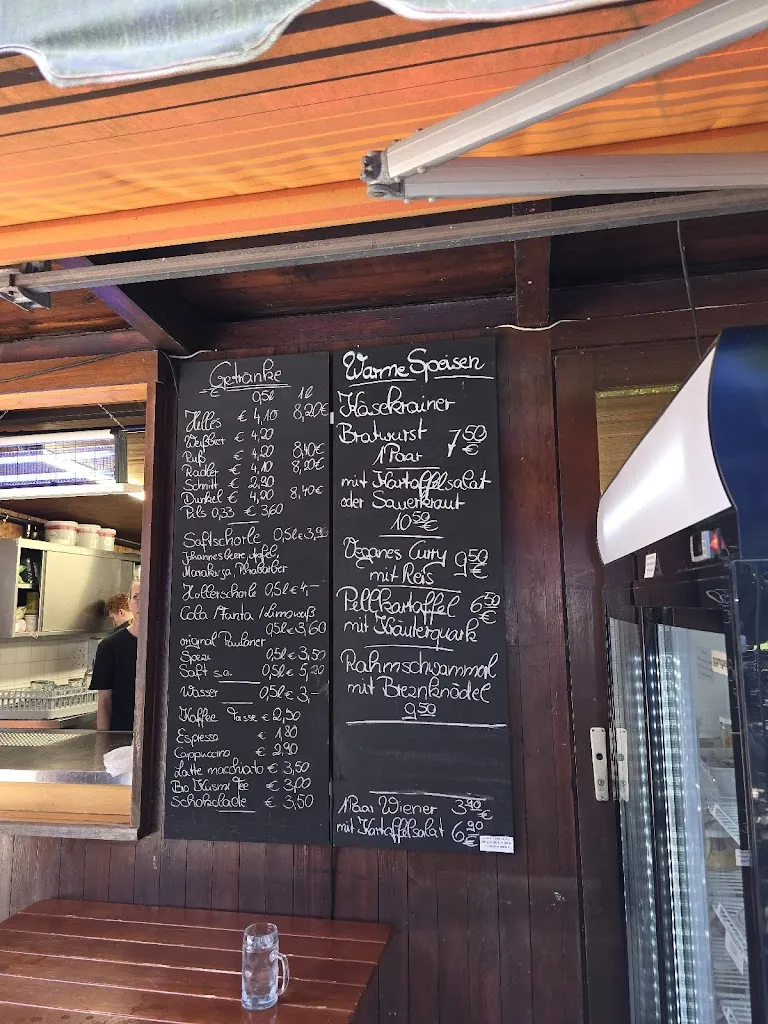 Getränke
0,5l 1l
Helles € 4,10 8,20€
Weißbier € 4,20
Ruß € 4,20 8,40€
Radler € 4,10 8,20€
Schnitt € 2,90
Dunkel € 4,20 8,40€
Pils 0,33 € 3,60
Saftschorle 0,5l € 3,90
Johannesbeere, Apfel,
Marakuja, Rhabarber
Hollerschorle 0,5l € 4,-
Cola / Fanta / Limoweiß
0,5l € 3,60
original Paulaner
Spezi 0,5l € 3,50
Saft s.o. 0,5l € 5,20
Wasser 0,5l € 3,-
Kaffee Tasse € 2,50
Espresso € 1,80
Cappuccino € 2,90
Latte macchiato € 3,50
Bio Kusmi Tee € 3,00
Schokolade € 3,50
Warme Speisen
Käsekrainer
Bratwurst 7,50 €
1 Paar
mit Kartoffelsalat
oder Sauerkraut
10,50 €
Veganes Curry 9,50 €
mit Reis
Pellkartoffel 6,50 €
mit Kräuterquark
Rahmschwammerl
mit Breznknödel
9,50
1 Paar Wiener 3,90 €
mit Kartoffelsalat 6,90 €